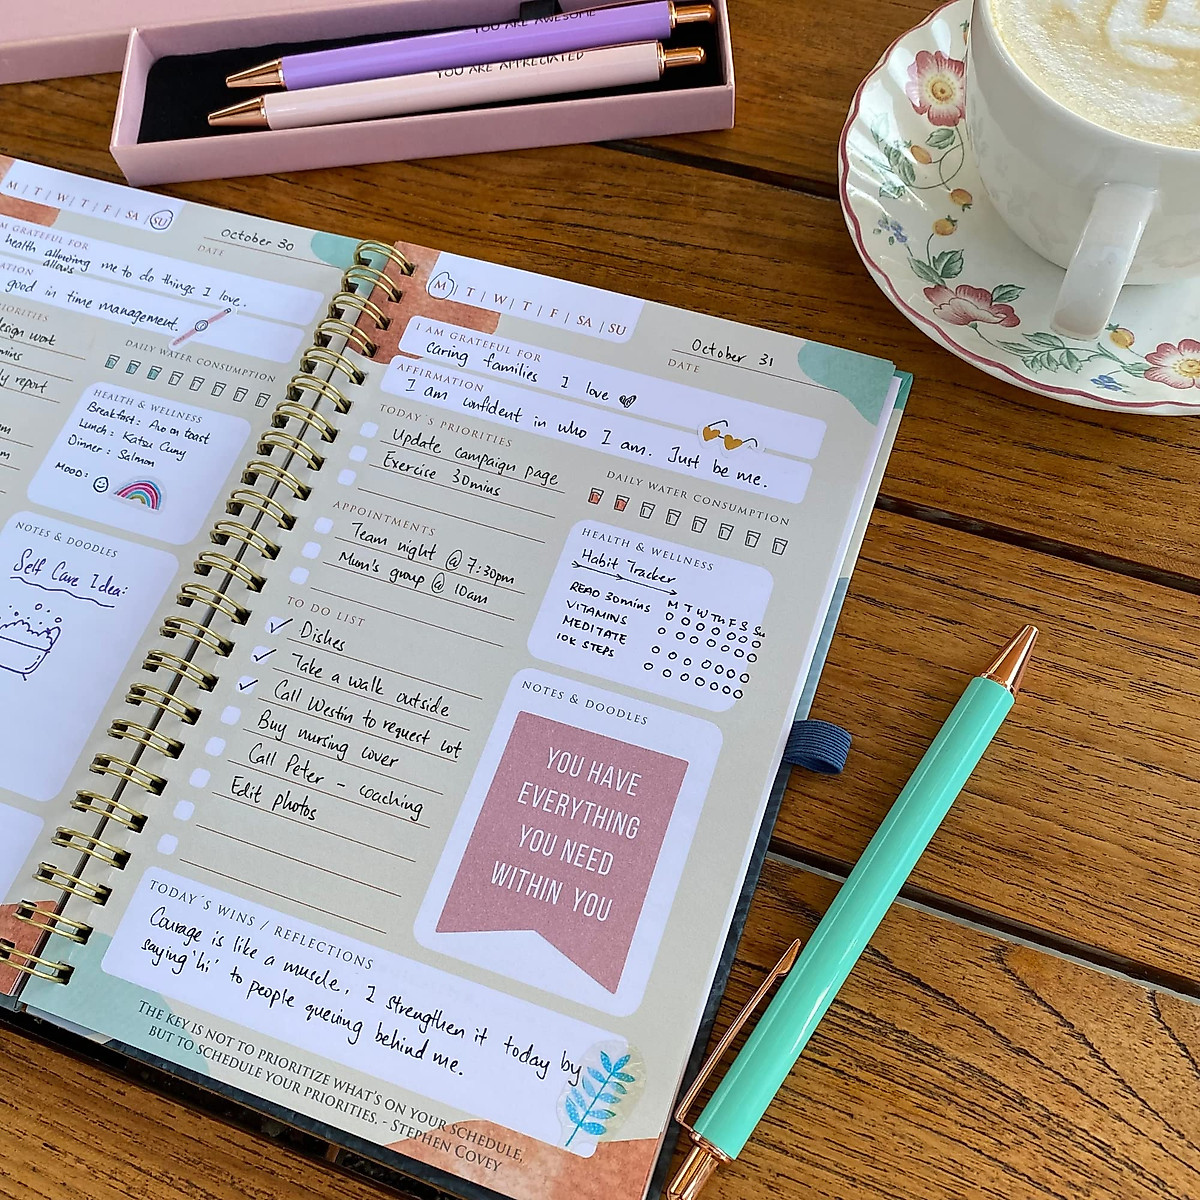 YOU ARE AWESOME
YOU ARE APPRECIATED
M | T | W | T | F | SA | SU
October 30
DATE
GRATEFUL FOR
health allowing me to do things I love.
allows
good in time management.
work
report
DAILY WATER CONSUMPTION
HEALTH & WELLNESS
Breakfast: Avo on toast
Lunch: Katsu Curry
Dinner: Salmon
MOOD:
NOTES & DOODLES
Self Care Idea:
M | T | W | T | F | SA | SU
October 31
DATE
I AM GRATEFUL FOR
caring families I love
AFFIRMATION
I am confident in who I am. Just be me.
TODAY´S PRIORITIES
Update campaign page
Exercise 30mins
DAILY WATER CONSUMPTION
APPOINTMENTS
Team night @ 7:30pm
Mum's group @ 10am
HEALTH & WELLNESS
Habit Tracker
M T W Th F S Su
READ 30mins
VITAMINS
MEDITATE
10K STEPS
TO DO LIST
Dishes
Take a walk outside
Call Westin to request cot
Buy nursing cover
Call Peter - coaching
Edit photos
NOTES & DOODLES
YOU HAVE
EVERYTHING
YOU NEED
WITHIN YOU
TODAY´S WINS / REFLECTIONS
Courage is like a muscle. I strengthen it today by
saying 'hi' to people queuing behind me.
THE KEY IS NOT TO PRIORITIZE WHAT'S ON YOUR SCHEDULE,
BUT TO SCHEDULE YOUR PRIORITIES. - STEPHEN COVEY